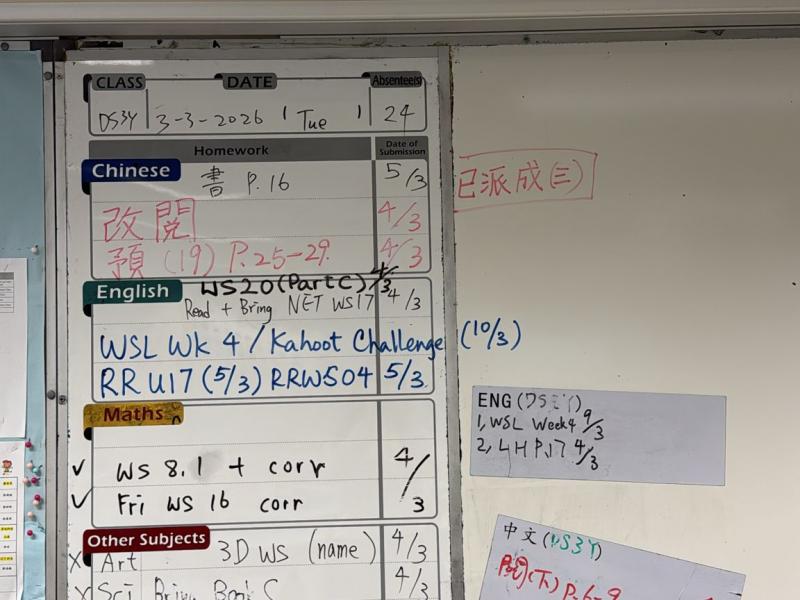 CLASS DATE Absentee(s)
DS3Y 3-3-2026 ( Tue ) 24
Homework Date of Submission
Chinese
書 P.16 5/3
改閱 4/3
預 (19) P.25-29. 4/3
已派成(三)
English
WS20(Part C) 4/3
Read + Bring NET WS17 4/3
WSL WK 4 / Kahoot Challenge (10/3)
RR U17 (5/3) RRWS04 5/3
Maths
✓ WS 8.1 + corr 4/3
✓ Fri WS 16 corr
Other Subjects
X Art 3D WS (name) 4/3
X Sci Bring Book C 4/3
ENG (DS3Y)
1, WSL Week4 9/3
2, LH P.17 4/3
中文 (DS3Y)
閱(下) P.6-9